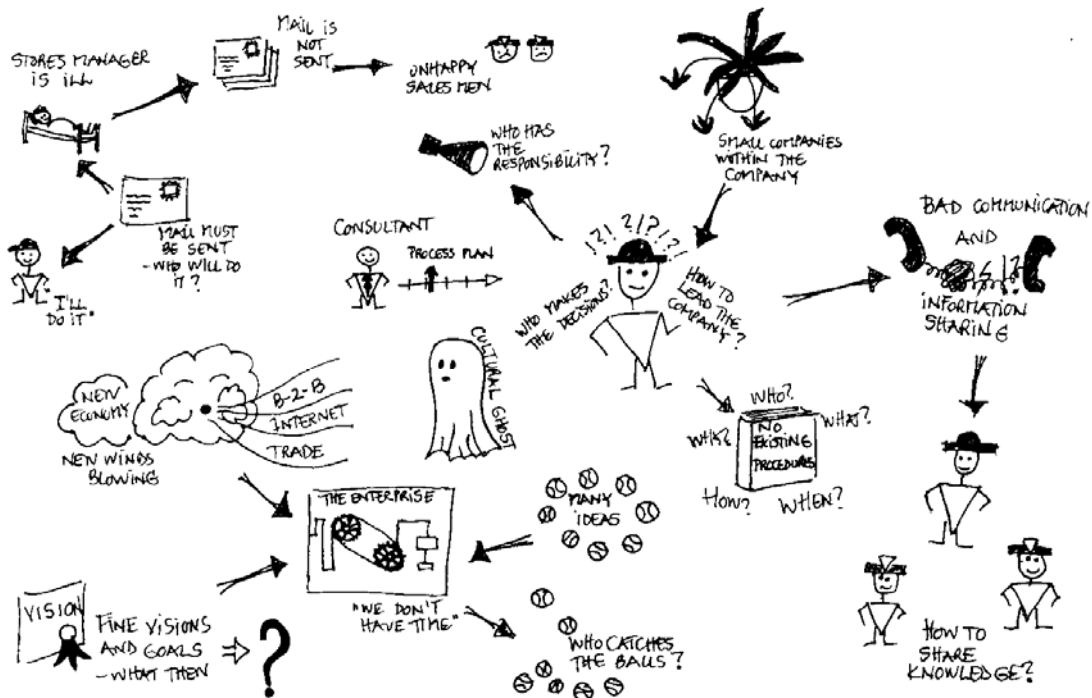 STORES MANAGER
IS ILL
MAIL IS
NOT
SENT
UNHAPPY
SALES MEN
MAIL MUST
BE SENT
- WHO WILL DO
IT?
"I'LL
DO IT"
WHO HAS
THE
RESPONSIBILITY?
SMALL COMPANIES
WITHIN THE
COMPANY
CONSULTANT
PROCESS PLAN
!?!?!?!?
WHO MAKES
THE DECISIONS?
HOW TO
LEAD THE
COMPANY?
BAD COMMUNICATION
AND
!?
INFORMATION
SHARING
NEW
ECONOMY
NEW WINDS
BLOWING
B-2-B
INTERNET
TRADE
CULTURAL GHOST
WHO?
WHAT?
WHAT?
NO
EXISTING
PROCEDURES
HOW?
WHEN?
THE ENTERPRISE
MANY
IDEAS
"WE DON'T
HAVE TIME"
WHO CATCHES
THE BALLS?
VISION
FINE VISIONS
AND GOALS
- WHAT THEN
?
HOW TO
SHARE
KNOWLEDGE?